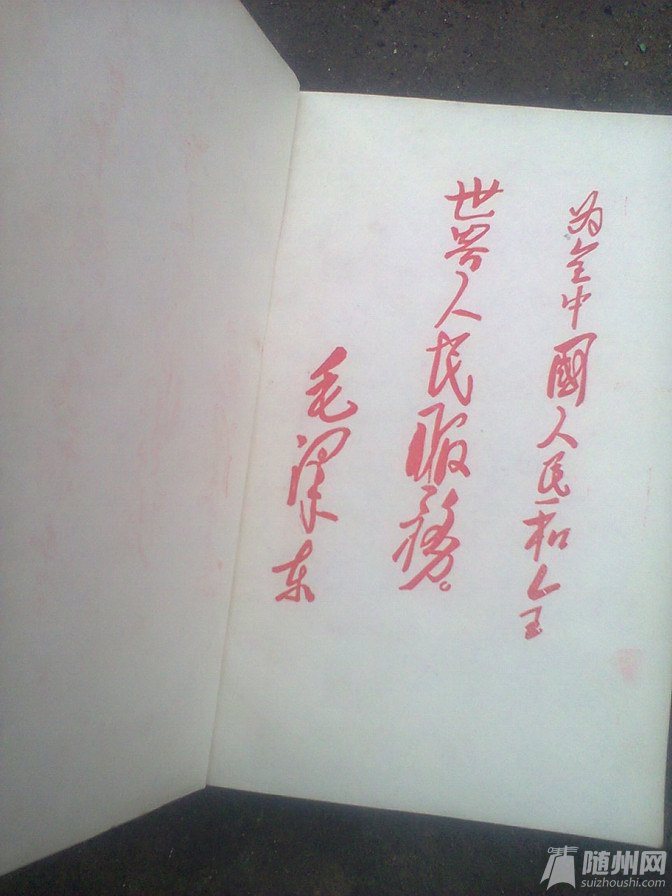 为全中國人民和全
世界人民服務。
毛泽东
随州网
suizhoushi.com